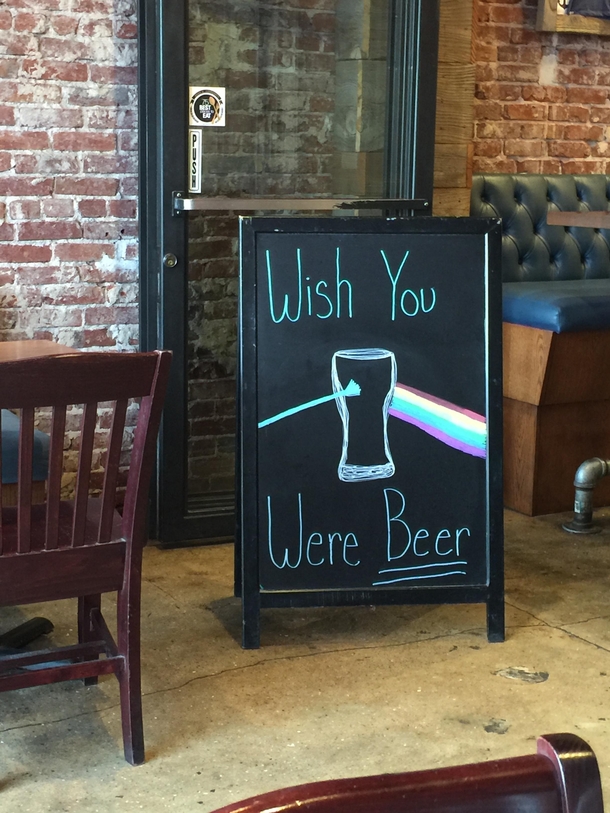 BEST
EAT
PUSH
Wish You
Were Beer